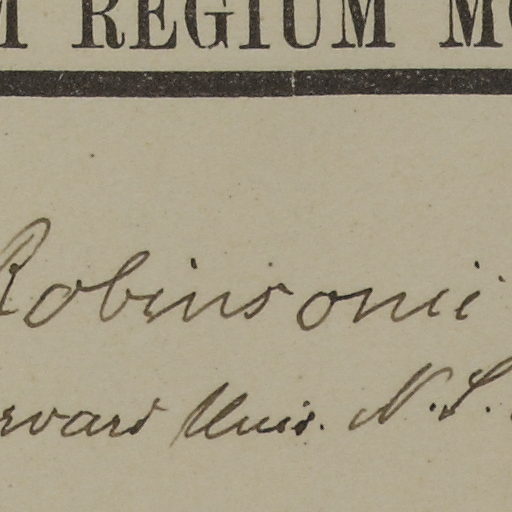 M REGIUM MO
Robinsonii
rvard Univ. N. S.